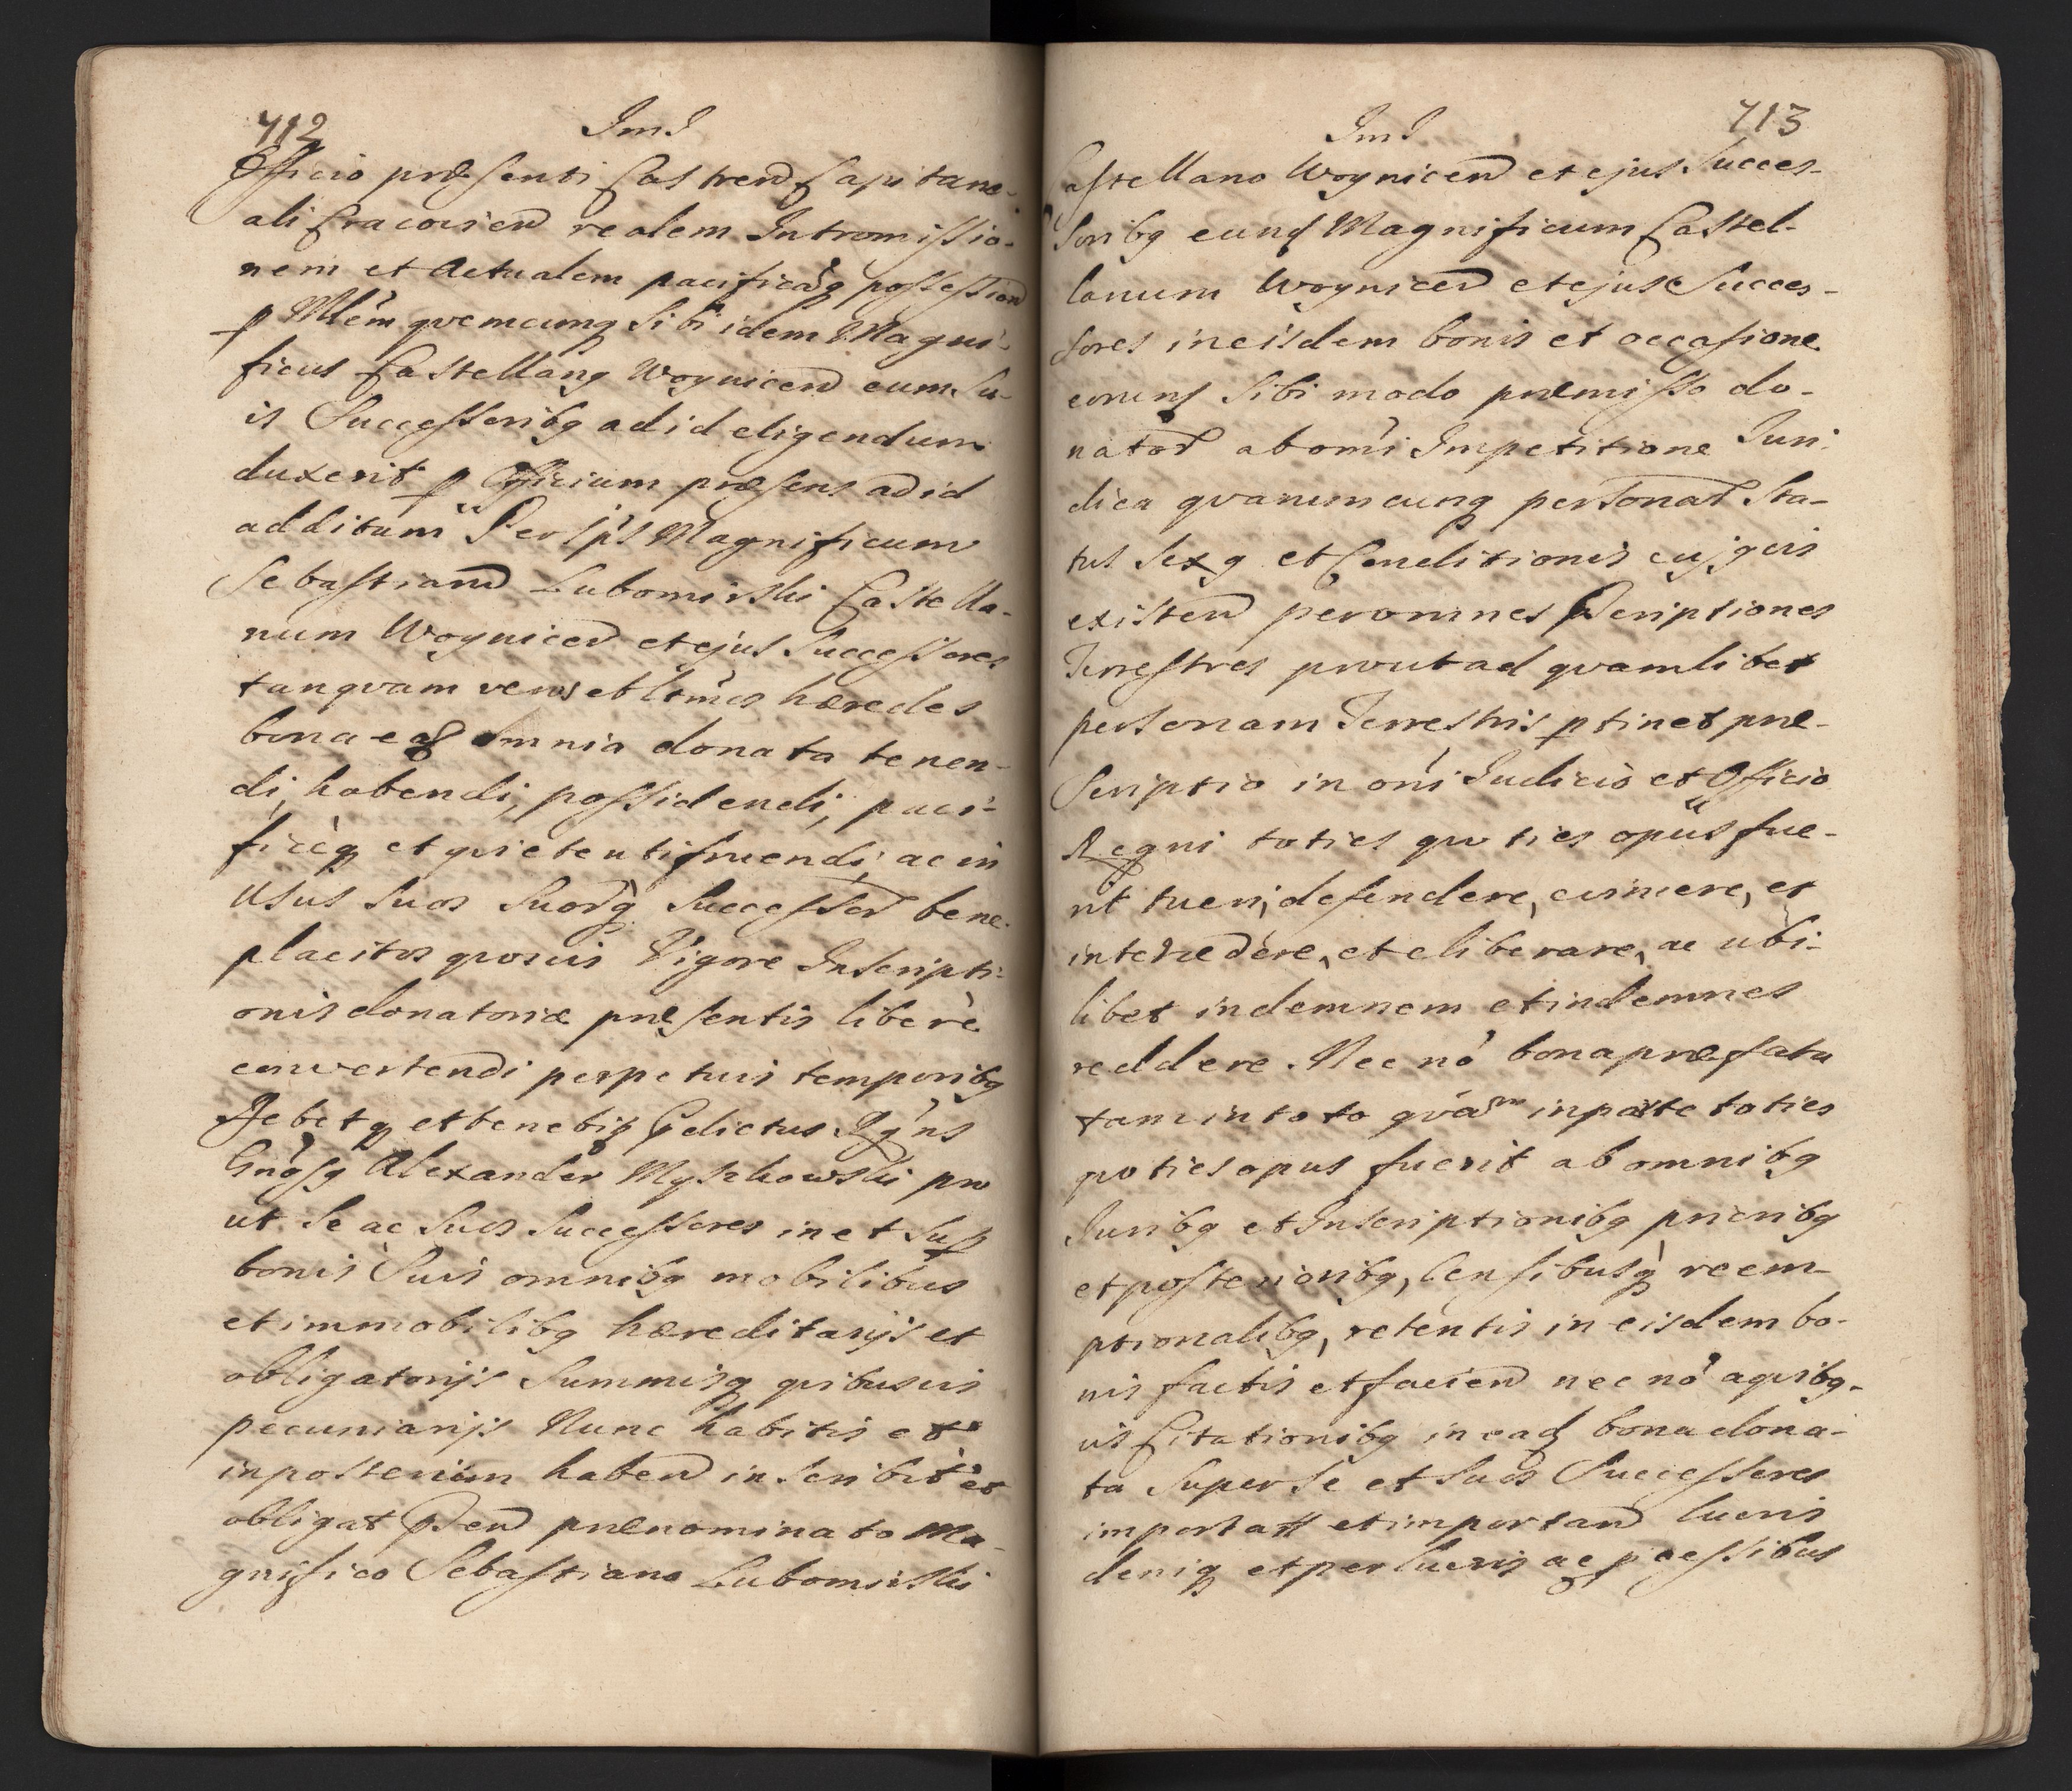 712
ImJ
Officio præsenti Castren Capitane-
ali Cracovien realem Intromissio-
nem et Actualem pacificaq possession
p Mlem qvemcunq sibi idem Magni-
ficus Castellanq Woynicen cum su-
is Successoribq ad id eligendum
duxerit p Officium præsens ad id
additum Magnificum
Sebastian Lubomirski Castella-
num Woynicen et ejus Successores
tanqvam veros et ltimos hæredes
bona ead omnia donata tenen-
di, habendi, possidendi, paci-
ficeq et qviete utifruendi, ac in
Usus suos suorq Successor bene-
placitos qvosvis Vigore Inscripti-
onis donatoriæ præsentis liberè
convertendi perpetuis temporibq
Debetq et tenebit Pdictus Rgns
Gnosq Alexander Myszkowski pro
ut se ac suos Successores in et sup
bonis Suis omnibq mobilibus
et immobilibq hæreditarijs et
obligatorijs Summisq qvibusvis
pecuniarijs Nunc habitis et
inposterum haben inscribit et
obligat Pen prænominato Ma-
gnifico Sebastiano Lubomirski
713
ImJ
Castellano Woynicen et ejus Succes-
soribq eund Magnificum Castel-
lanum Woynicen et ejus Succes-
sores in eisdem bonis et occasione
eorund sibi modo præmisso do-
nator ab omi Impetitione Juri-
dica qvarumcunq personar sta-
tus sexq et Conditionis cujqvis
existen per omnes Pscriptiones
Terrestres prout ad qvamlibet
personam Terrestris ptinet præ-
scriptio in oni Judicio et Officio
Regni toties qvoties opus fue-
rit tueri, defendere, evincere, et
intercedere, et eliberare, ac ubi-
libet indemnem et indemnes
reddere. Nec nō bona præfata
tam in toto qvam in parte toties
qvoties opus fuerit ab omnibq
Juribq et Inscriptionibq prioribq
et posterioribq, Censibusq reem-
ptionalibq, retentis in eisdem bo-
nis factis et facien nec nō a qvibq-
vis Citationibq in ead bona dona-
ta super se et suos Successores
importatt et importan lucris
deniq et perlucris ac pcessibus